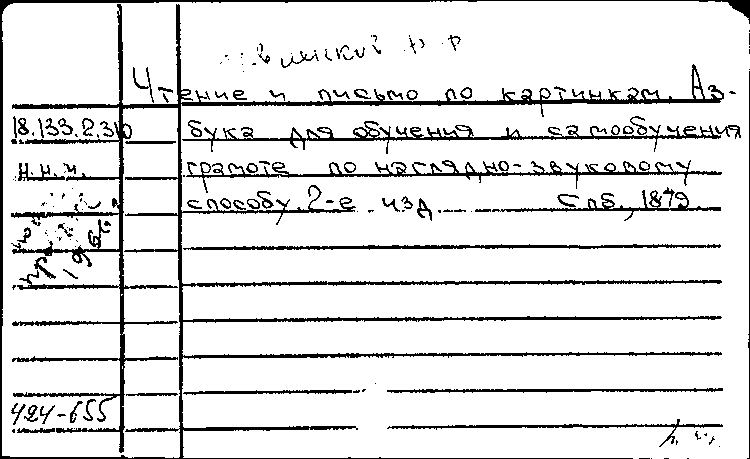 Чтение и письмо по картинкам. Аз-
18.133.2.310 бука для обучения и самообучения
н.н.м. грамоте по наглядно-звуковому
способу. 2-е изд Спб., 1879.
424-655